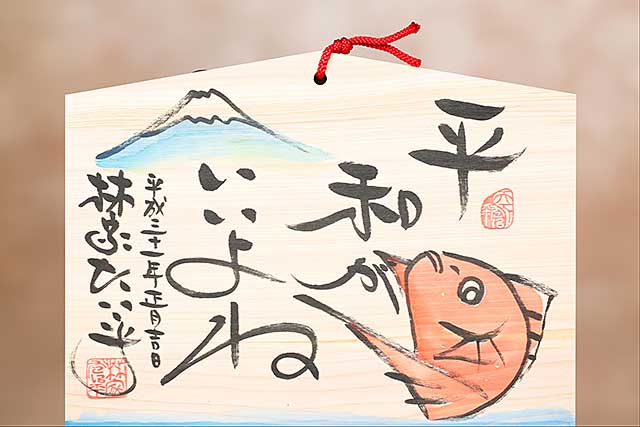 平和が
いいよね
平成三十一年正月吉日
林家たい平